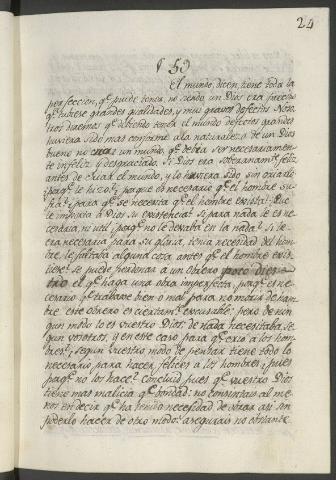 24
§ 59
El mundo, dicen, tiene toda la
perfeccion, q.e puede tener, no siendo un Dios era preciso
q.e tuviese grandes qualidades, y mui graves defectos. Noso
tros diremos q.e debiendo tener el mundo defectos grandes
huviera sido mas conforme a la naturaleza de un Dios
bueno no crear un mundo, q.e debia ser necesariamente
infeliz y desgraciado. Si Dios era soberanam.te feliz
antes de criar el mundo, y lo huviera sido sin criarle
porq.e le hizo? porque es necesario q.e el hombre su
fra? para q.e se necesita q.e el hombre exista? Que
le importa a Dios su existencia? Si para nada le es ne
cesaria, ni util, porq.e no le dexaba en la nada? Si
era necesaria para su gloria, tenia necesidad del hom
bre, le faltaba alguna cosa antes q.e el hombre exis
tiese. Se puede perdonar a un obrero poco dies
tro el q.e haga una obra imperfecta, porq.e es ne
cesario q.e trabaje bien o mal para no morir de ham
bre este obrero es ciertam.te excusable: pero de nin
gun modo lo es vuestro Dios: de nada necesitaba, se
gun vosotros, y en este caso para q.e crio a los hom
bres? segun vuestro modo de pensar tiene todo lo
necesario para hacer felices a los hombres, pues
porq.e no los hace? Concluid pues q.e vuestro Dios
tiene mas malicia q.e bondad: no consintais al me
nos en decir q.e ha tenido necesidad de obrar asi sin
poderlo hacer de otro modo: asegurais no obstante